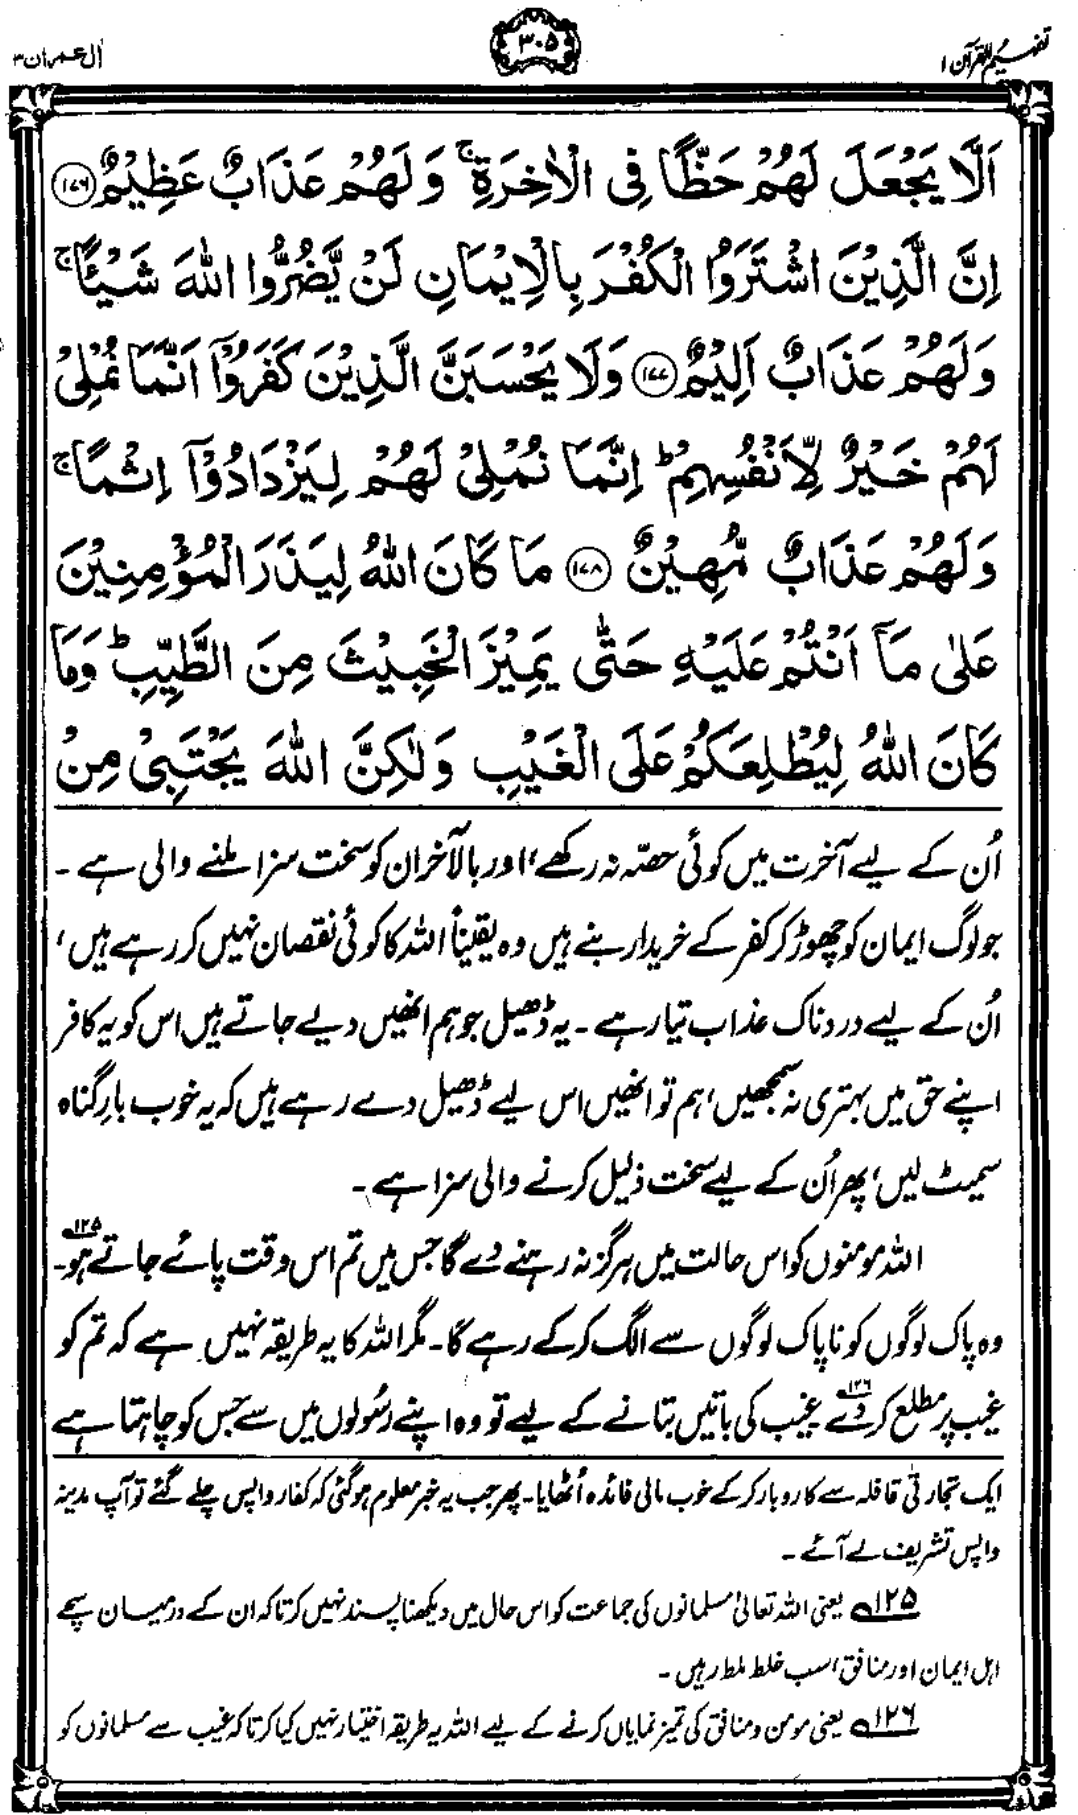 تفہیم القرآن ۱
۳۰۵
اٰل عمران ۳
اَلَّا يَجْعَلَ لَهُمْ حَظًّا فِى الْاٰخِرَةِ ۚ وَلَهُمْ عَذَابٌ عَظِيْمٌ ﴿۱۷۶﴾
اِنَّ الَّذِيْنَ اشْتَرَوُا الْكُفْرَ بِالْاِيْمَانِ لَنْ يَّضُرُّوا اللّٰهَ شَيْـًٔا ۚ
وَلَهُمْ عَذَابٌ اَلِيْمٌ ﴿۱۷۷﴾ وَلَا يَحْسَبَنَّ الَّذِيْنَ كَفَرُوْٓا اَنَّمَا نُمْلِىْ
لَهُمْ خَيْرٌ لِّاَنْفُسِهِمْ ؕ اِنَّمَا نُمْلِىْ لَهُمْ لِيَزْدَادُوْٓا اِثْمًا ۚ
وَلَهُمْ عَذَابٌ مُّهِيْنٌ ﴿۱۷۸﴾ مَا كَانَ اللّٰهُ لِيَذَرَ الْمُؤْمِنِيْنَ
عَلٰى مَآ اَنْتُمْ عَلَيْهِ حَتّٰى يَمِيْزَ الْخَبِيْثَ مِنَ الطَّيِّبِ ؕ وَمَا
كَانَ اللّٰهُ لِيُطْلِعَكُمْ عَلَى الْغَيْبِ وَلٰكِنَّ اللّٰهَ يَجْتَبِىْ مِنْ
اُن کے لیے آخرت میں کوئی حصّہ نہ رکھے، اور بالآخر ان کو سخت سزا ملنے والی ہے۔
جو لوگ ایمان کو چھوڑ کر کفر کے خریدار بنے ہیں وہ یقیناً اللہ کا کوئی نقصان نہیں کر رہے ہیں،
اُن کے لیے دردناک عذاب تیار ہے۔ یہ ڈھیل جو ہم انھیں دیے جاتے ہیں اس کو یہ کافر
اپنے حق میں بہتری نہ سمجھیں، ہم تو انھیں اس لیے ڈھیل دے رہے ہیں کہ یہ خوب بارِ گناہ
سمیٹ لیں، پھر اُن کے لیے سخت ذلیل کرنے والی سزا ہے۔
اللہ مومنوں کو اس حالت میں ہرگز نہ رہنے دے گا جس میں تم اس وقت پائے جاتے ہو۔۱۲۵
وہ پاک لوگوں کو ناپاک لوگوں سے الگ کرکے رہے گا۔ مگر اللہ کا یہ طریقہ نہیں ہے کہ تم کو
غیب پر مطلع کر دے۱۲۶ غیب کی باتیں بتانے کے لیے تو وہ اپنے رسُولوں میں سے جس کو چاہتا ہے
ایک تجارتی قافلہ سے کاروبار کرکے خوب مالی فائدہ اُٹھایا۔ پھر جب یہ خبر معلوم ہوگئی کہ کفار واپس چلے گئے تو آپ مدینہ
واپس تشریف لے آئے۔
۱۲۵؎ یعنی اللہ تعالیٰ مسلمانوں کی جماعت کو اس حال میں دیکھنا پسند نہیں کرتا کہ ان کے درمیان سچے
اہل ایمان اور منافق، سب خلط ملط رہیں۔
۱۲۶؎ یعنی مومن و منافق کی تمیز نمایاں کرنے کے لیے اللہ یہ طریقہ اختیار نہیں کیا کرتا کہ غیب سے مسلمانوں کو